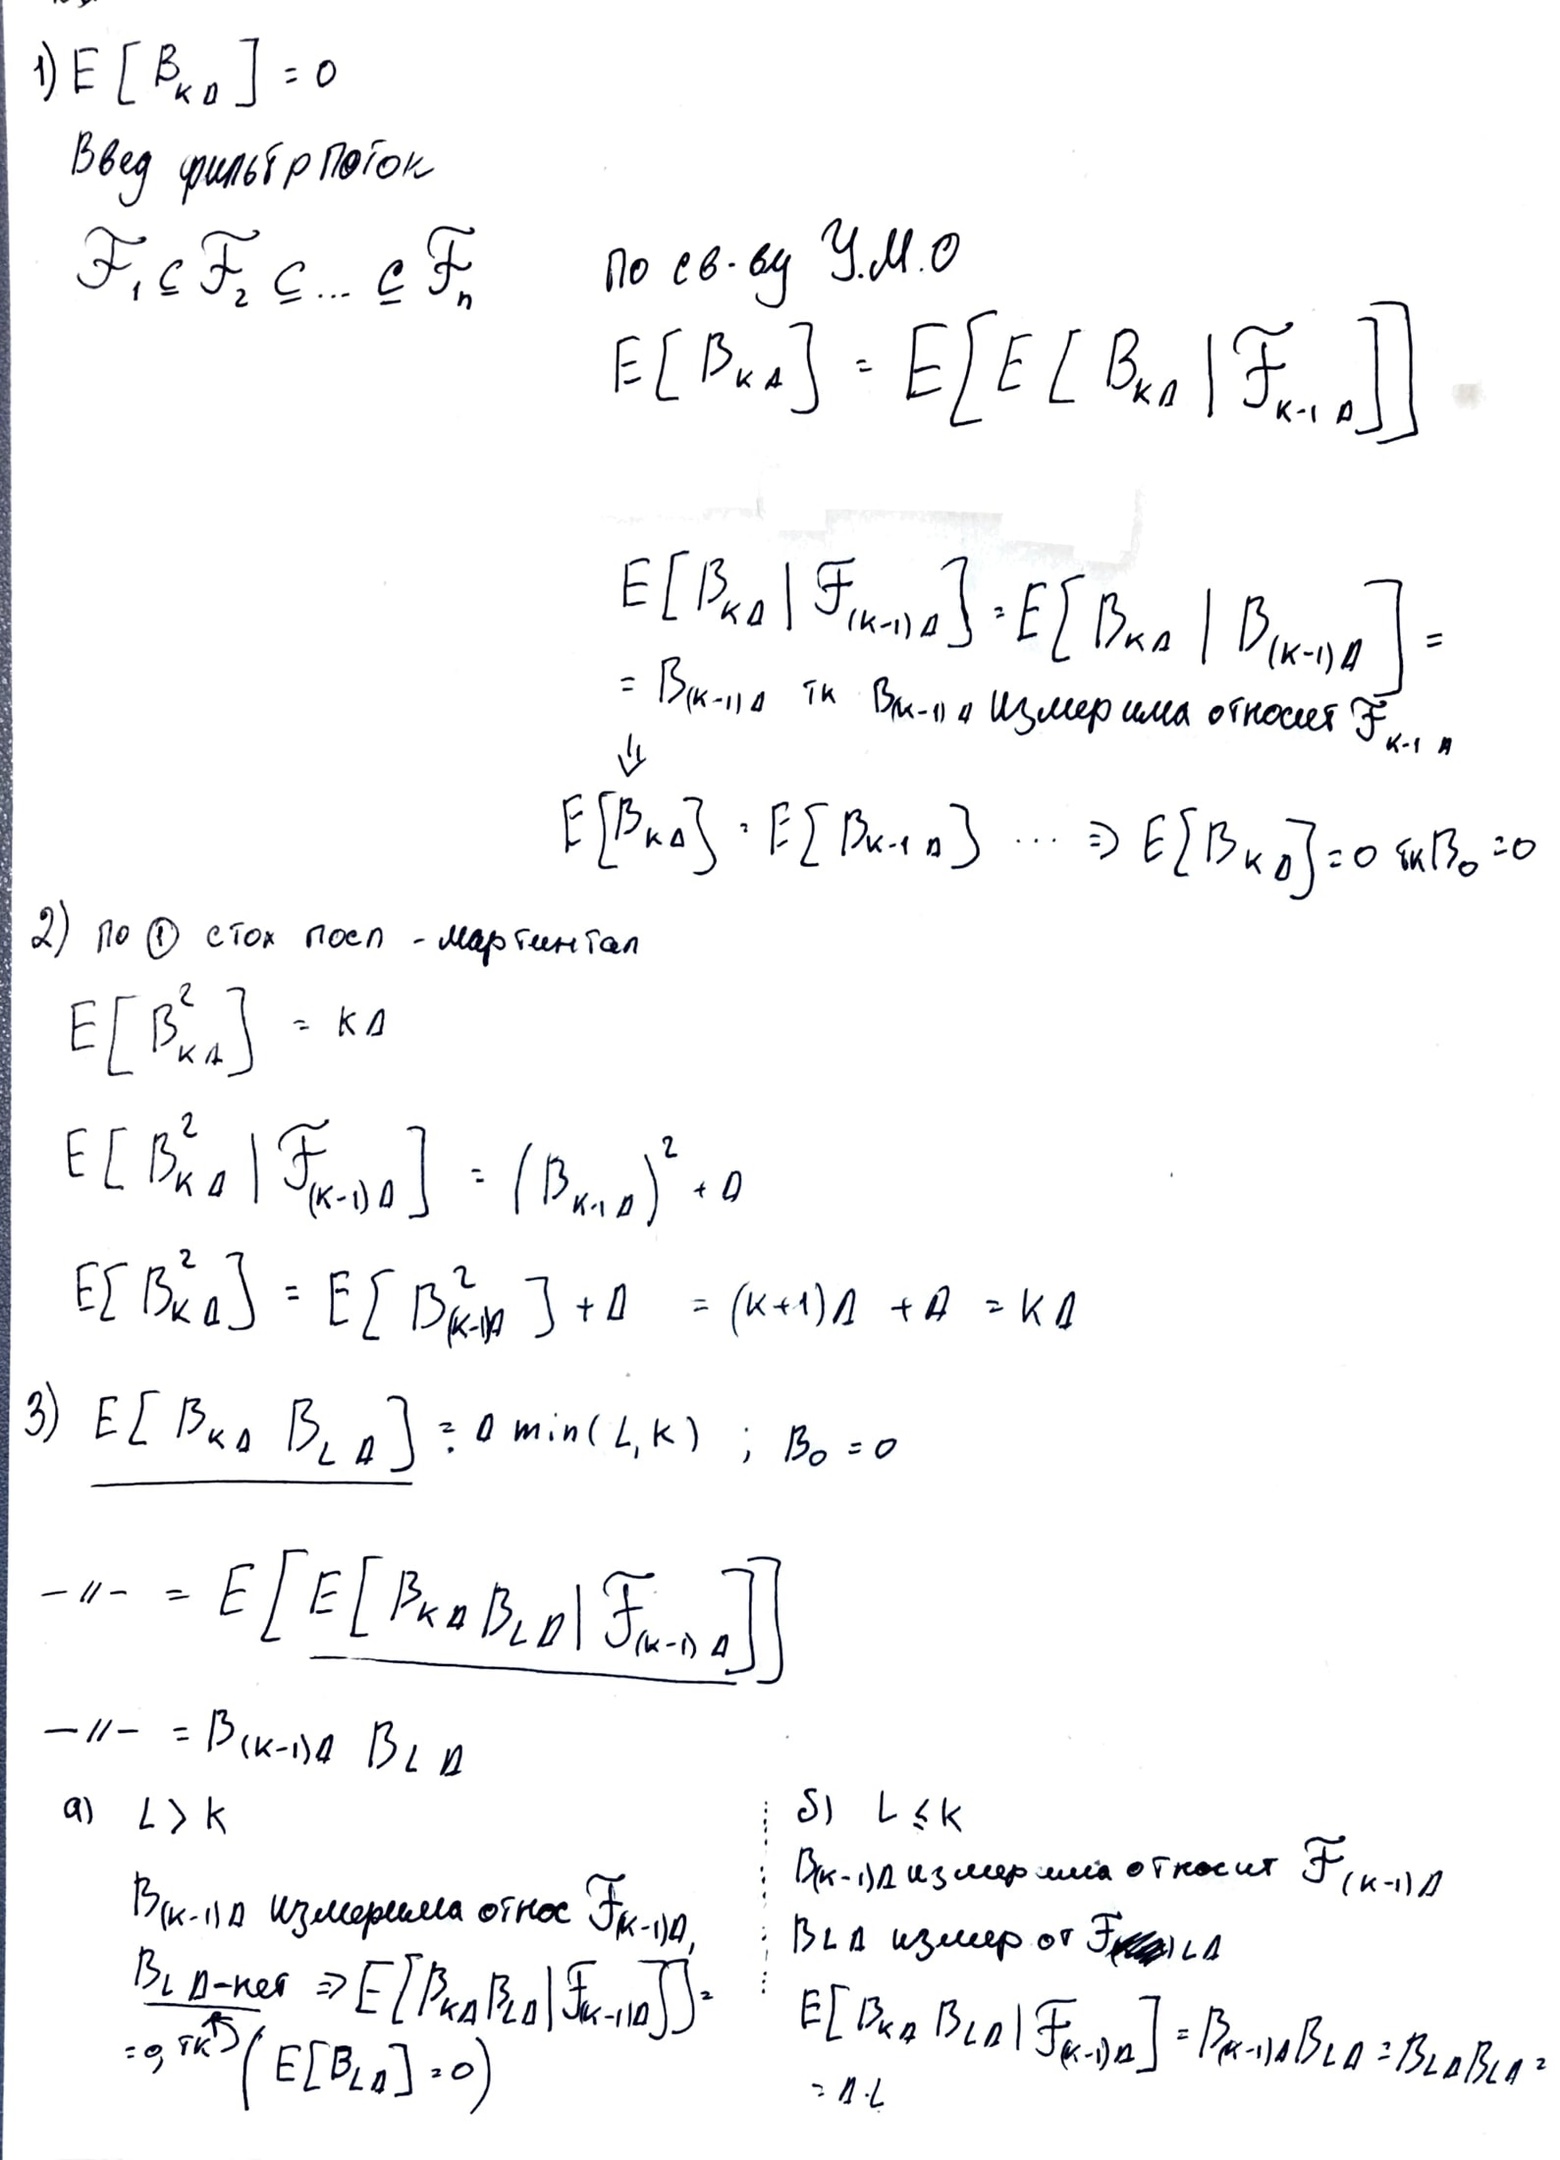 1) E[B_{KΔ}] = 0
Введ фильтр поток
F_1 ⊆ F_2 ⊆ ... ⊆ F_n
по св-ву У.М.О
E[B_{KΔ}] = E[E[B_{KΔ} | F_{K-1 Δ}]]
E[B_{KΔ} | F_{(K-1)Δ}] = E[B_{KΔ} | B_{(K-1)Δ}] =
= B_{(K-1)Δ} тк B_{(K-1)Δ} измерима относит F_{K-1 Δ}
⇓
E[B_{KΔ}] = E[B_{K-1 Δ}] ... ⇒ E[B_{KΔ}] = 0 тк B_0 = 0
2) по ① стох посл - мартингал
E[B^2_{KΔ}] = KΔ
E[B^2_{KΔ} | F_{(K-1)Δ}] = (B_{K-1 Δ})^2 + Δ
E[B^2_{KΔ}] = E[B^2_{(K-1)Δ}] + Δ = (K+1)Δ + Δ = KΔ
3) E[B_{KΔ} B_{LΔ}] = Δ min(L, K) ; B_0 = 0
-//- = E[E[B_{KΔ} B_{LΔ} | F_{(K-1)Δ}]]
-//- = B_{(K-1)Δ} B_{LΔ}
а) L > K
B_{(K-1)Δ} измерима относ F_{(K-1)Δ},
B_{LΔ} - нет ⇒ E[B_{KΔ} B_{LΔ} | F_{(K-1)Δ}]] =
= 0, тк (E[B_{LΔ}] = 0)
б) L ≤ K
B_{(K-1)Δ} измерима относит F_{(K-1)Δ}
B_{LΔ} измер от F_{LΔ}
E[B_{KΔ} B_{LΔ} | F_{(K-1)Δ}] = B_{(K-1)Δ} B_{LΔ} = B_{LΔ} B_{LΔ} =
= Δ·L